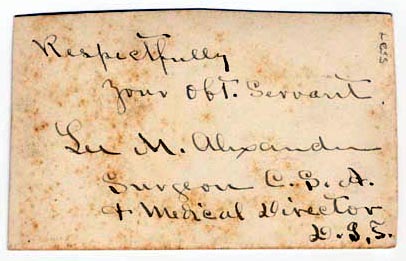 Respectfully
Your Obt. Servant
Lee M. Alexander
Surgeon C. S. A.
& Medical Director
D. I. S.